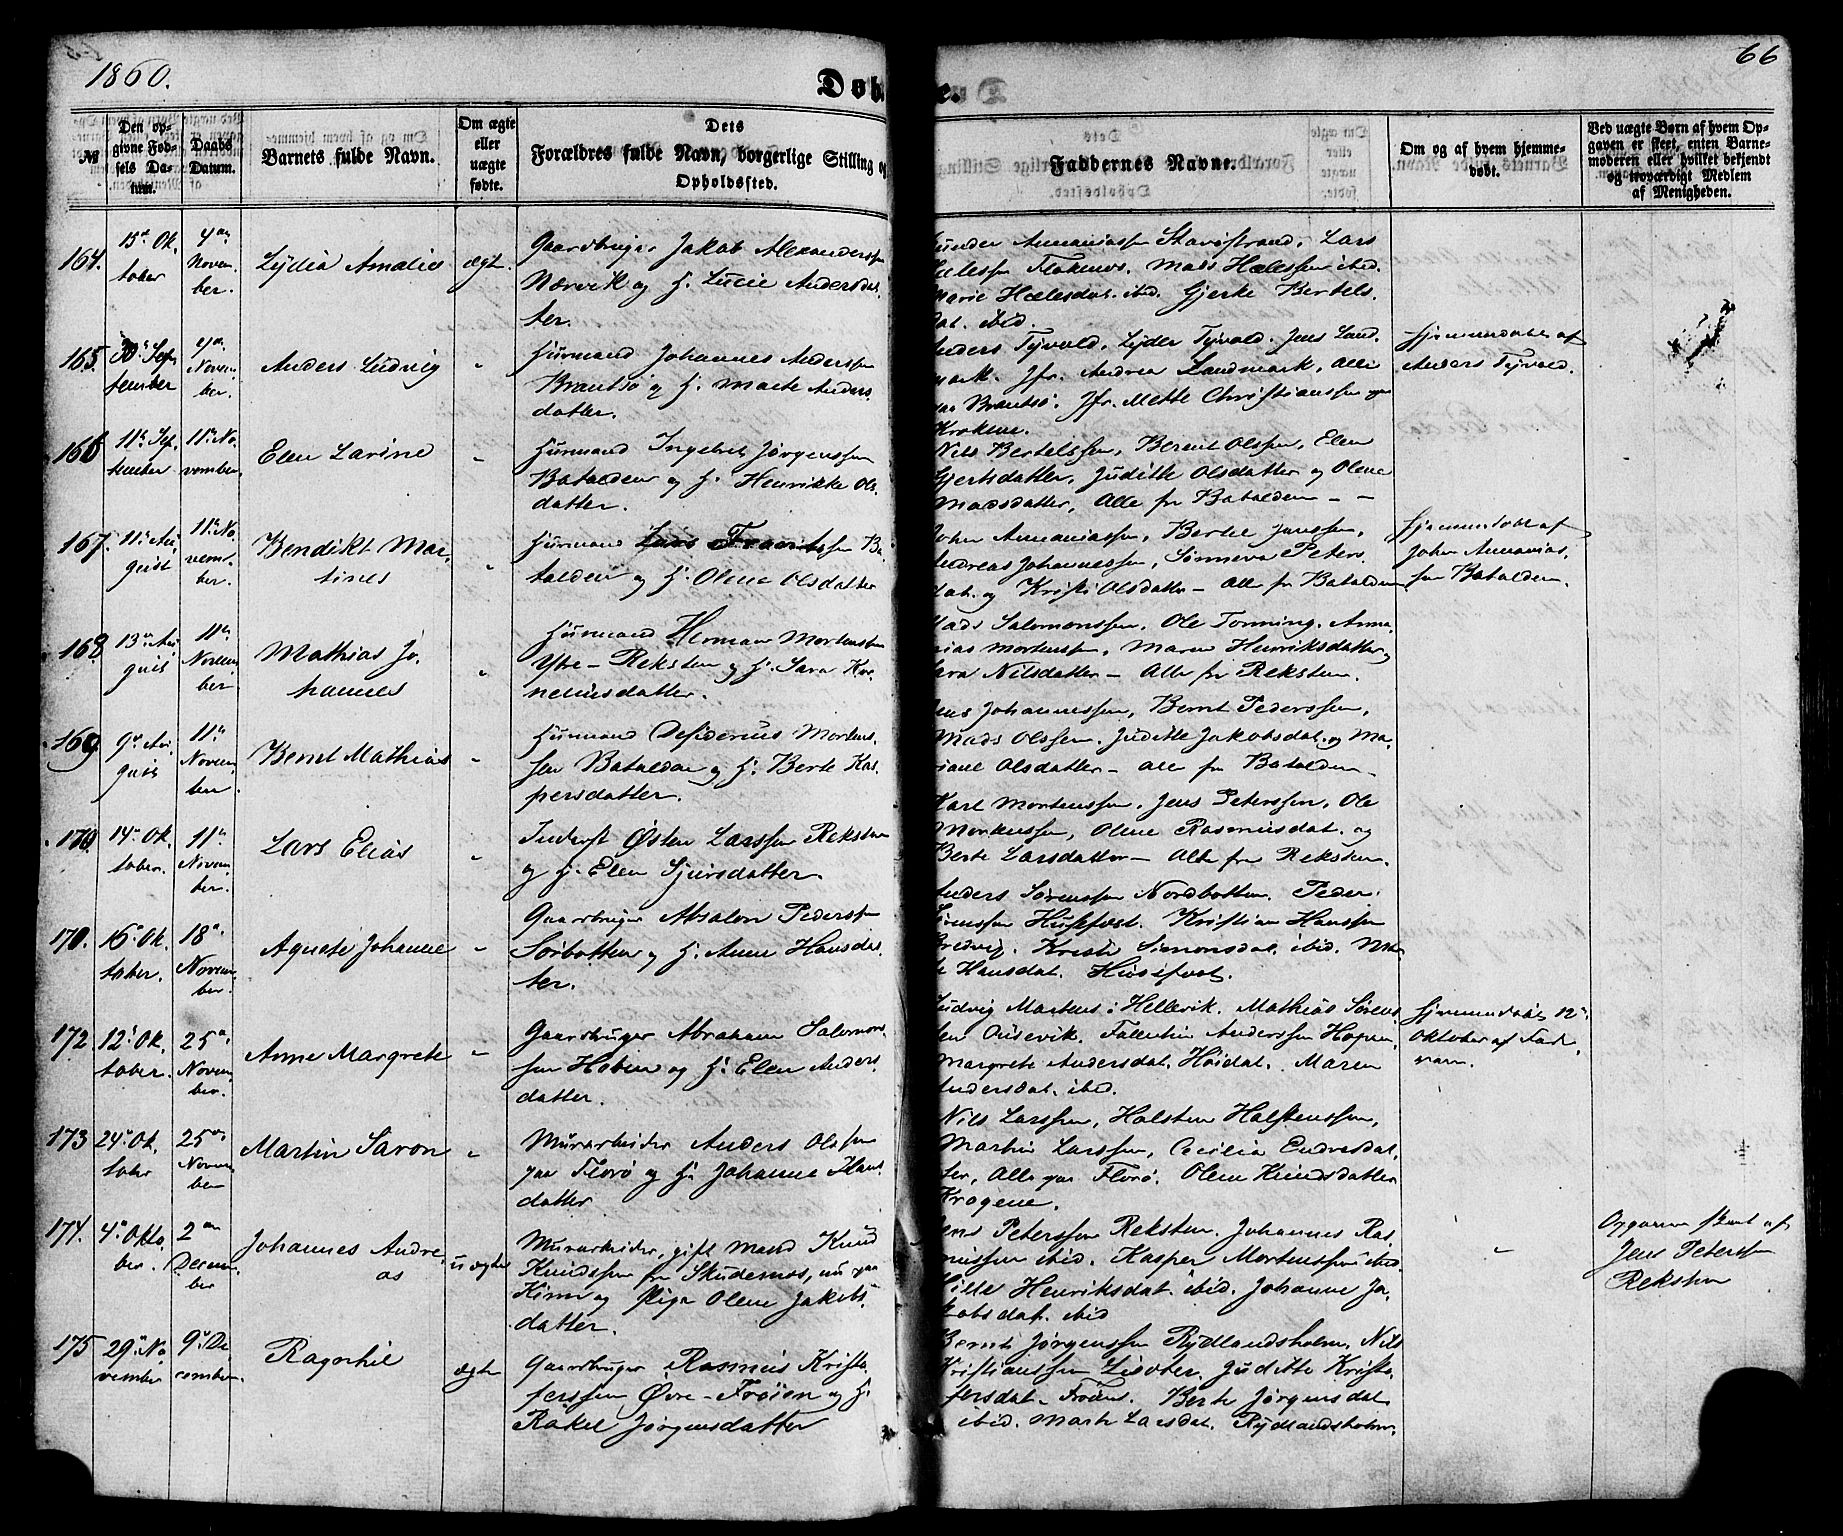 1860.
66
Døb
e.
№
Den op-
givne Fød-
sels Da-
tum.
Daabs
Datum.
Barnets fulde Navn.
Om ægte
eller
uægte
fødte.
Dets
Forældres fulde Navn, borgerlige Stilling og
Opholdssted.
Faddernes Navne.
Om og af hvem hjemme-
døbt.
Ved uægte Børn af hvem Op-
gaven er skeet, enten Barne-
moderen eller hvilket bekjendt
og troværdigt Medlem
af Menigheden.
164.
15de Ok
tober
4de
Novem
ber.
Lydia Amalie
ægte
Gaardbruger Jakob Alexanderssen
Nærvik og H. Lucie Andersdat
ter.
Annaniassen Stavøstrand, Lars
Hælessen Flokenes. Mads Hælessen ibid.
Marie Hælesdat. ibid. Gjerke Bertels
dat. ibid.
165.
30 Sep
tember
4de
Novem
ber.
Anders Ludvig
"
Huusmand Johannes Anderssen
Brandsø og H. Marte Anders
datter.
Anders Tyvold, Lyder Tyvold. Jens Land
mark. Jfr. Andrea Landmark, alle
paa Brandsø. Jfr. Mette Christianssen paa
Krokene.
Hjemmedøbt af
Anders Tyvold.
166
11te Sep
tember
11te No
vember
Elen Larine
"
Huusmand Ingebret Jørgenssen
Batalden og H. Henrikke Ols
datter.
Nils Bertelssen, Berent Olssen, Elen
Gjertsdatter, Judithe Olsdatter og Olene
Madsdatter, Alle fra Batalden - -
167.
11te Au
gust
11te No
vem
ber.
Bendikt Mar
tines
"
Huusmand Ba
talden og H. Olene Olsdatter
Johan Annaniassen, Berthe
Andreas Johannessen, Sønneva Peters
dat. og Kristi Olsdatter - Alle fra Batalden
Hjemmedøbt af
Johan Annanias
sen Batalden.
168
13de Au
gust
11te
Novem
ber
Mathias Jo
hannes
"
Huusmand Herman Mortenssen
Ytre-Reksten og H. Sara Kor
neliusdatter.
Mads Salomonssen. Ole Tonning. Anna
nias Mortenssen, Maren Henriksdatter og
Sara Nilsdatter - Alle fra Reksten.
169
9de Au
gust
11te
Novem
ber
Bernt Mathias
"
Huusmand Desiderius Mortens
sen Batalden og H. Berte Kas
persdatter.
Jens Johannessen, Bernt Pederssen,
Mads Olssen. Judithe Jakobsdat. og Ma
riane Olsdatter - alle fra Batalden -
170.
14de Ok
tober.
11te
Novem
ber.
Lars Elias
"
Inderst Østen Larssen Reksten
og H. Elen Sjursdatter.
Karl Mortenssen. Jens Peterssen. Ole
Mortenssen, Olene Rasmusdat. og
Berte Larsdatter - Alle fra Reksten.
170.
16de Ok
tober.
18de
Novem
ber.
Agnete Johanne
"
Gaardbruger Absalon Pederssen
Sørbotten og H. Anne Hansdat
ter.
Anders Sørenssen Nordbotten. Peder
Sørenssen Husefest. Kristian Hanssen
Bredvig. Kristi Simonsdat. ibid.
Hansdat. Husefest.
172.
12te Ok
tober.
25de
Novem
ber.
Anne Margrete
"
Gaardbruger Abraham Salomons
sen og H. Elen Anders
datter.
Ludvig Martens i Hellevik. Mathias Sørens
sen Ousevik. Falentin Anderssen Hopen
Margrete Andersdat. Høidal. Maren
Andersdat. ibid.
Hjemmedøbt 12te
Oktober af Fad
ren.
173
24de Ok
tober
25de
Novem
ber
Martin Saron
"
Murarbeider Anders Olssen
paa Florø og H. Johanne Hans
datter
Nils Larssen, Halsten Halstenssen,
Martin Larssen, Cecilia Endresdat
ter, Alle paa Florø. Olene Knudsdatter
Krogene.
174.
4de Okto
ber.
2den
Decem
ber
Johannes Andre
as
uægte
Murarbeider, gift Mand Knud
Knudssen fra Skudenes, nu paa
Kinn og Pige Olene Jakobs
datter.
Jens Peterssen Reksten. Johannes Ras
mussen ibid. Kasper Mortenssen ibid.
Sille Henriksdat. ibid. Johanne Ja
kobsdat. ibid
"
Opgaven skeet af
Jens Peterssen
Reksten
175
29de No
vember
9de De
cember.
Ragnhil
ægte
Gaardbruger Rasmus Kristo
ferssen Øvre-Frøien og H.
Rakel Jørgensdatter
Bernt Jørgenssen Rydlandsholm, Nils
Kristianssen Ligoter. Juditte Kristo
fersdat. Frøien. Berte Jørgensdat.
ibid. Marte Larsdat. Rydlandsholm.